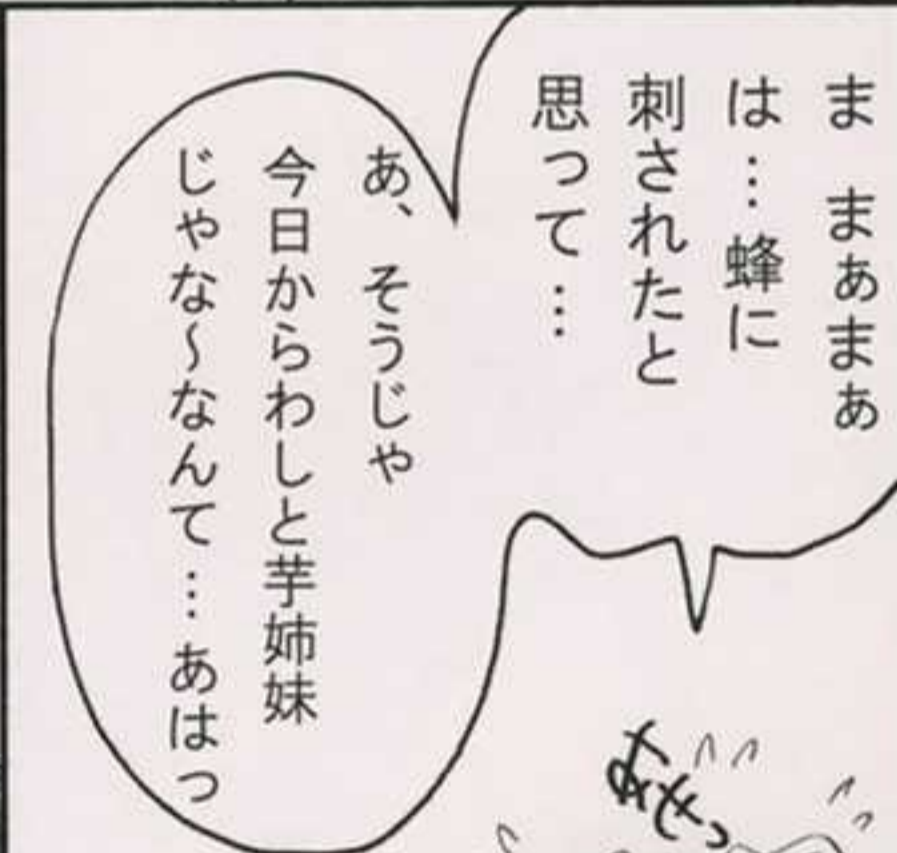 ま　まぁまぁ
は…蜂に
刺されたと
思って…
あ、そうじゃ
今日からわしと芋姉妹
じゃな～なんて…あはっ
あせっ